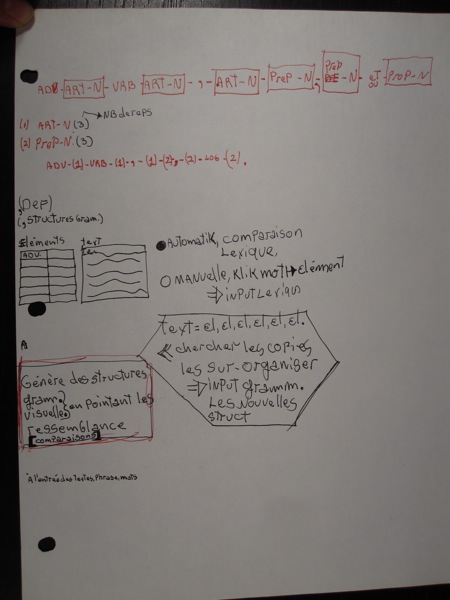 ADV-ART-N-VRB-ART-N-,-ART-N-PreP-N,PreP-N-et ou-PreP-N
(1) ART-N (3) → NB de reps
(2) PreP-N (3)
ADV-(1)-VRB-(1)-,-(1)-(2),-(2)-LOG-(2).
(Def)
(,structures Gram.)
Eléments
text
ADV.
Automatik, comparaison Lexique,
manuelle, klik mot → elément
⇒ input Lexique
text = el, el, el, el, el, el.
chercher les copies
les sur-organiser
⇒ input gramm.
Les nouvelles
struct
Génère des structures
gram.
visuelles, en pointant les
ressemblance
[comparaisons]
A l'entrée des textes, phrase, mots